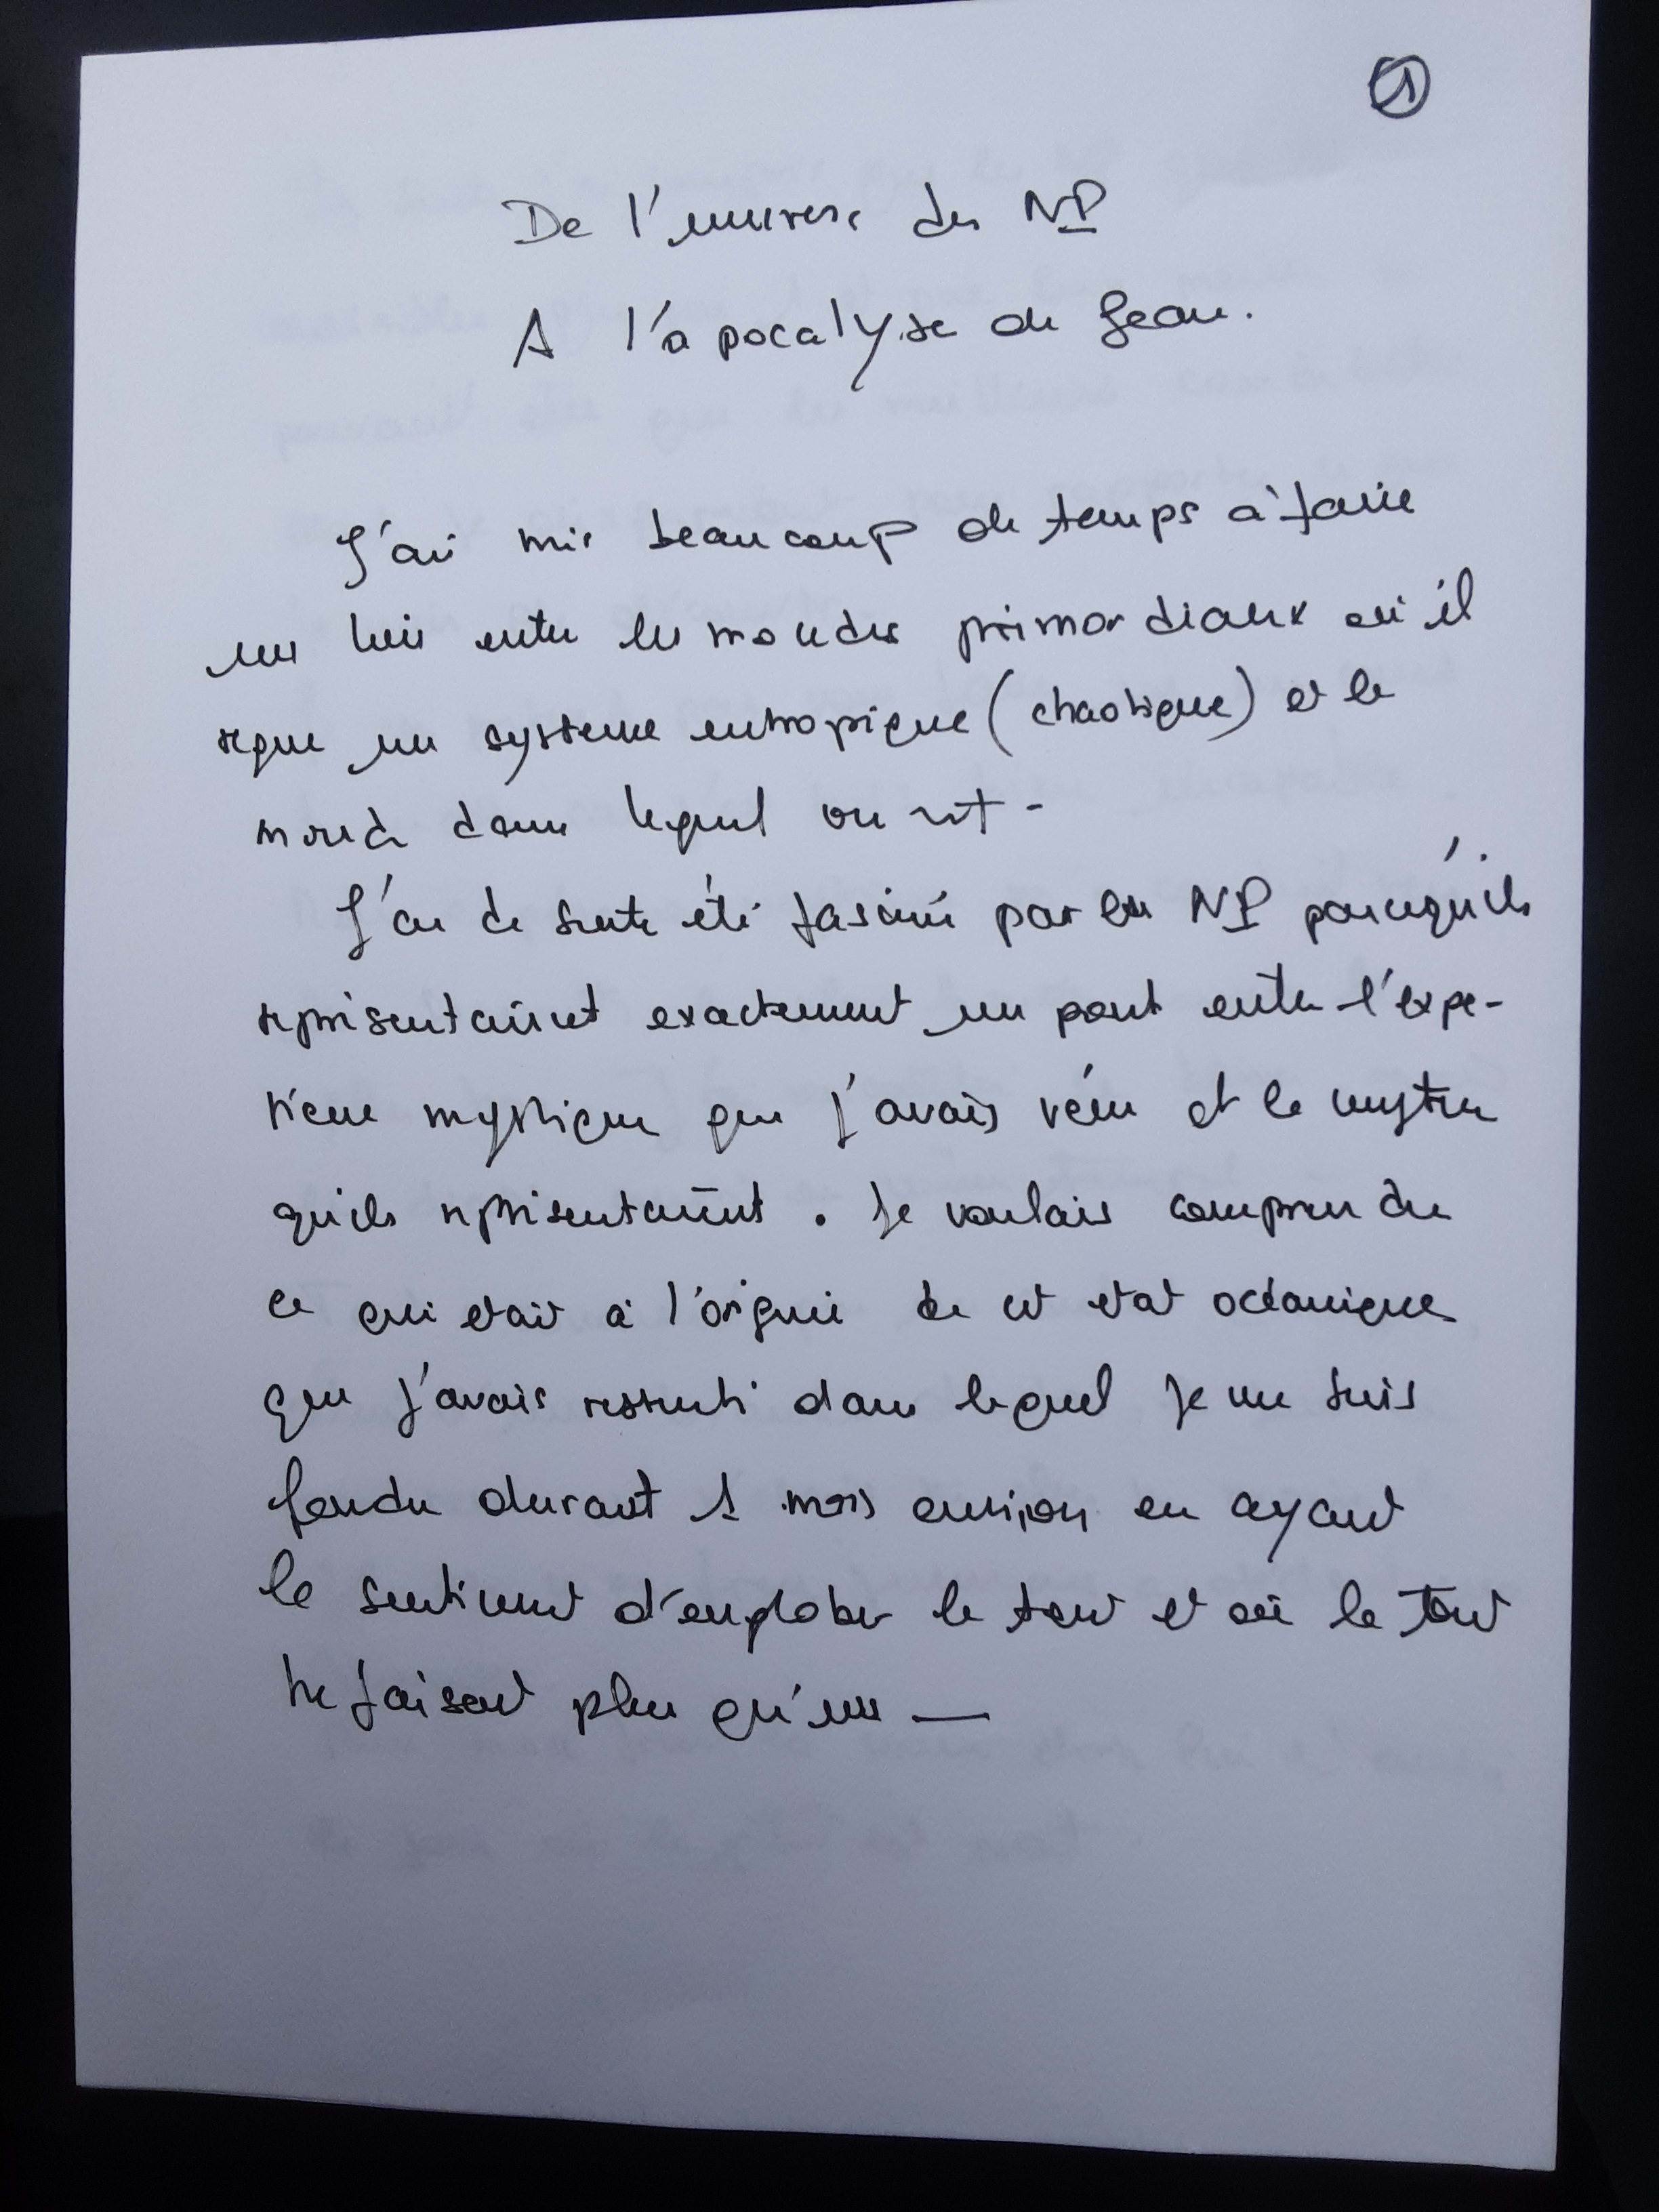 1
De l'univers des NP
A l'apocalypse de Jean.
J'ai mis beaucoup de temps à faire
un lien entre les mondes primordiaux où il
règne un système entropique (chaotique) et le
monde dans lequel on vit -
J'ai de suite été fasciné par les NP parcequ'ils
représentaient exactement un pont entre l'expé-
rience mystique que j'avais vécu et le mystère
qu'ils représentaient. Je voulais comprendre
ce qui était à l'origine de cet état océanique
que j'avais ressenti dans lequel je me suis
fondu durant 1 mois environ en ayant
le sentiment d'englober le tout et où le tout
ne faisant plus qu'un —